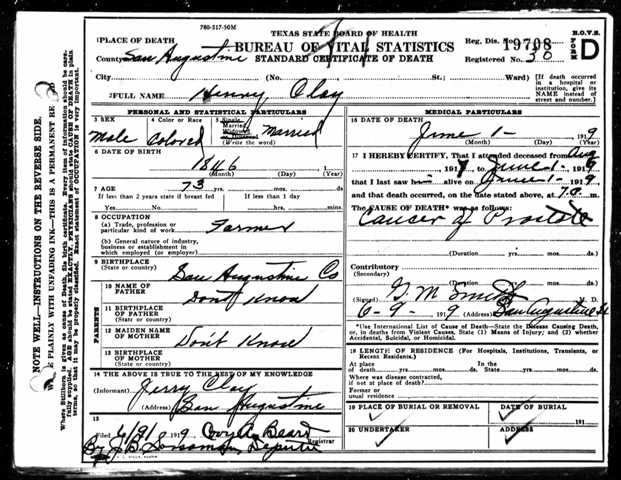 780-317-50M
TEXAS STATE BOARD OF HEALTH
BUREAU OF VITAL STATISTICS
STANDARD CERTIFICATE OF DEATH
Reg. Dis. No. 19708
Registered No. 30
B.O.V.S.
FORM D
1 PLACE OF DEATH
County San Augustine
City (No. St.; Ward)
[If death occurred in a hospital or institution, give its NAME instead of street and number.]
2 FULL NAME Henry Clay
PERSONAL AND STATISTICAL PARTICULARS
3 SEX Male
4 Color or Race Colored
5 Single Married Widowed or Divorced (Write the word) Married
6 DATE OF BIRTH
1846
(Month) (Day) (Year)
7 AGE 73 yrs. mos. ds.
If less than 2 years state if breast fed If less than 1 day
Yes No hrs. mins.
8 OCCUPATION
(a) Trade, profession or particular kind of work Farmer
(b) General nature of industry, business or establishment in which employed (or employer)
9 BIRTHPLACE
(State or country) San Augustine Co
PARENTS
10 NAME OF FATHER Don't Know
11 BIRTHPLACE OF FATHER
(State or country)
12 MAIDEN NAME OF MOTHER Don't Know
13 BIRTHPLACE OF MOTHER
(State or country)
14 THE ABOVE IS TRUE TO THE BEST OF MY KNOWLEDGE
(Informant) Jerry Clay
(Address) San Augustine
15
Filed 6/9/1919 Beard
Registrar
By J B Deputy
MEDICAL PARTICULARS
16 DATE OF DEATH
June 1- 1919
(Month) (Day) (Year)
17 I HEREBY CERTIFY, That I attended deceased from Aug
1917 to June 1- 1919
that I last saw him alive on June 1- 1919
and that death occurred, on the date stated above, at 7 a.m.
The CAUSE OF DEATH* was as follows:
Cancer of Prostate
(Duration) yrs. mos. ds.
Contributory
(Secondary)
(Duration) yrs. mos. ds.
(Signed) G M Smith M. D.
6-9-1919 (Address) San Augustine
*Use International List of Cause of Death—State the Disease Causing Death, or, in deaths from Violent Causes, State (1) Means of Injury; and (2) whether Accidental, Suicidal, or Homicidal.
18 LENGTH OF RESIDENCE (For Hospitals, Institutions, Transients, or Recent Residents.)
At place of death yrs. mos. ds. In the State yrs. mos. ds.
Where was disease contracted, if not at place of death?
Former or usual residence
19 PLACE OF BURIAL OR REMOVAL
DATE OF BURIAL
191
20 UNDERTAKER
ADDRESS
NOTE WELL—INSTRUCTIONS ON THE REVERSE SIDE.
E PLAINLY WITH UNFADING INK—THIS IS A PERMANENT RE